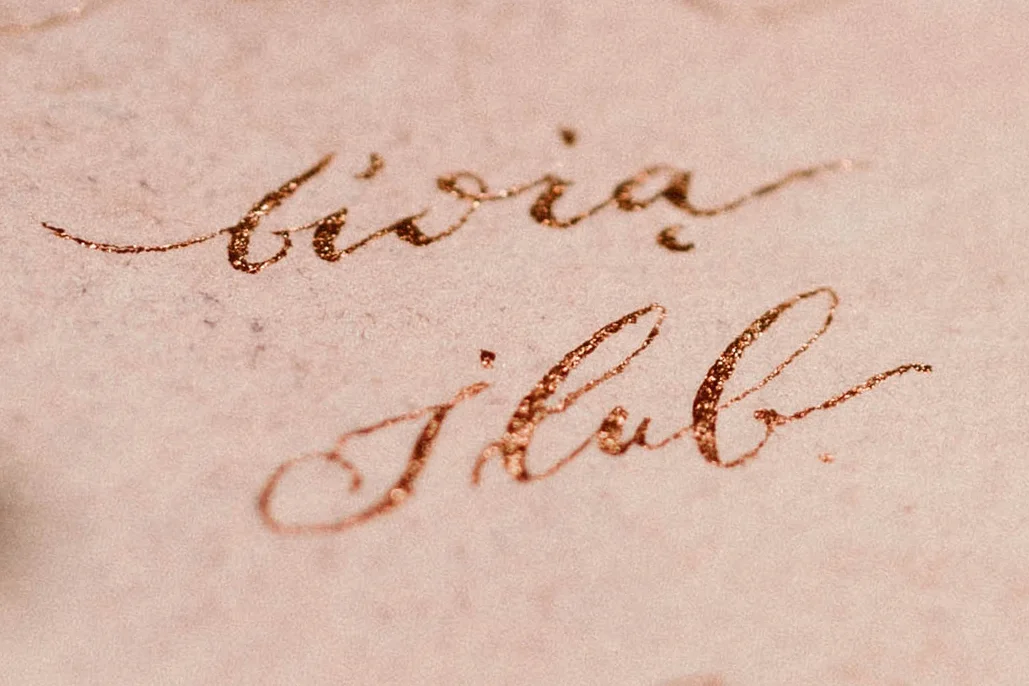 biorą
ślub